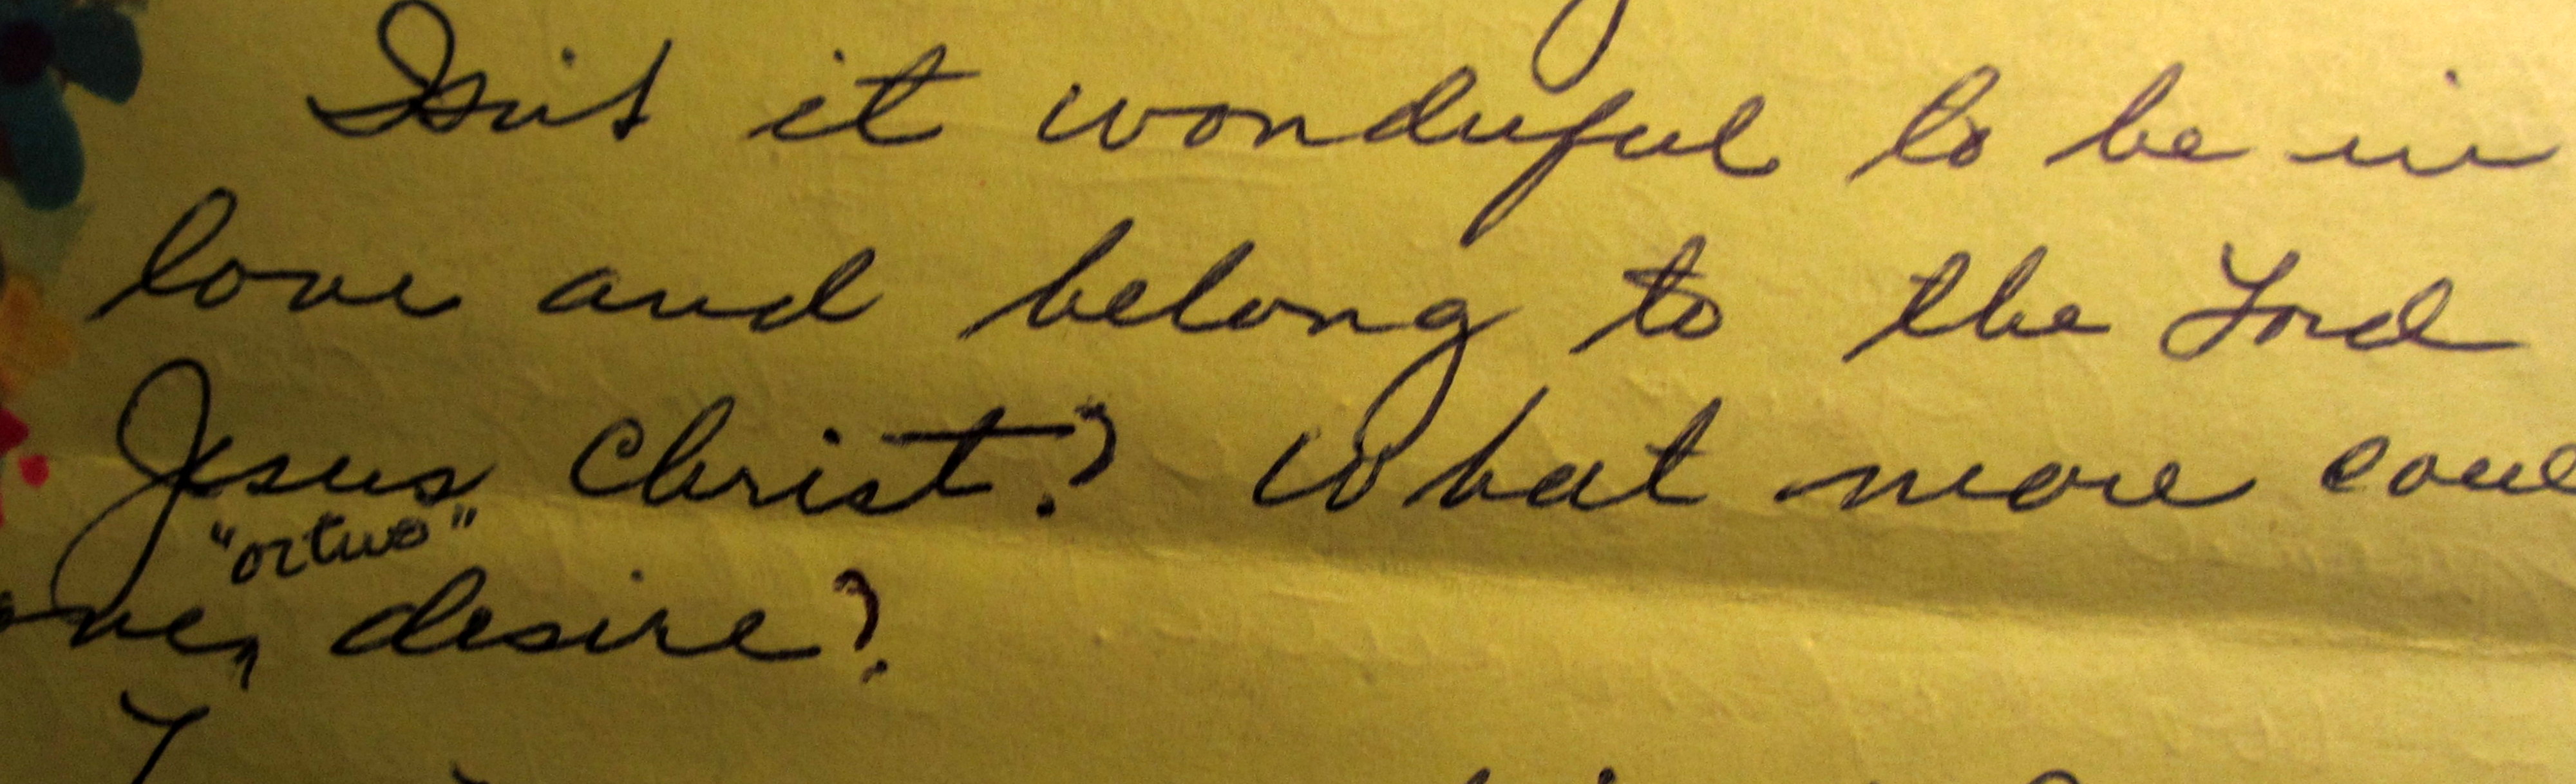 Isn't it wonderful to be in
love and belong to the Lord
Jesus Christ? What more coul
"or two"
one, desire?